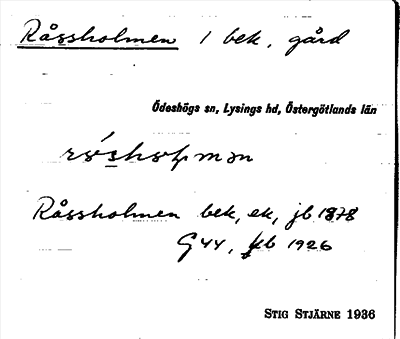 Råssholmen 1 bek. gård
Ödeshögs sn, Lysings hd, Östergötlands län
Råssholmen bek, ek, jb 1878
G 44, kb 1926
STIG STJÄRNE 1936